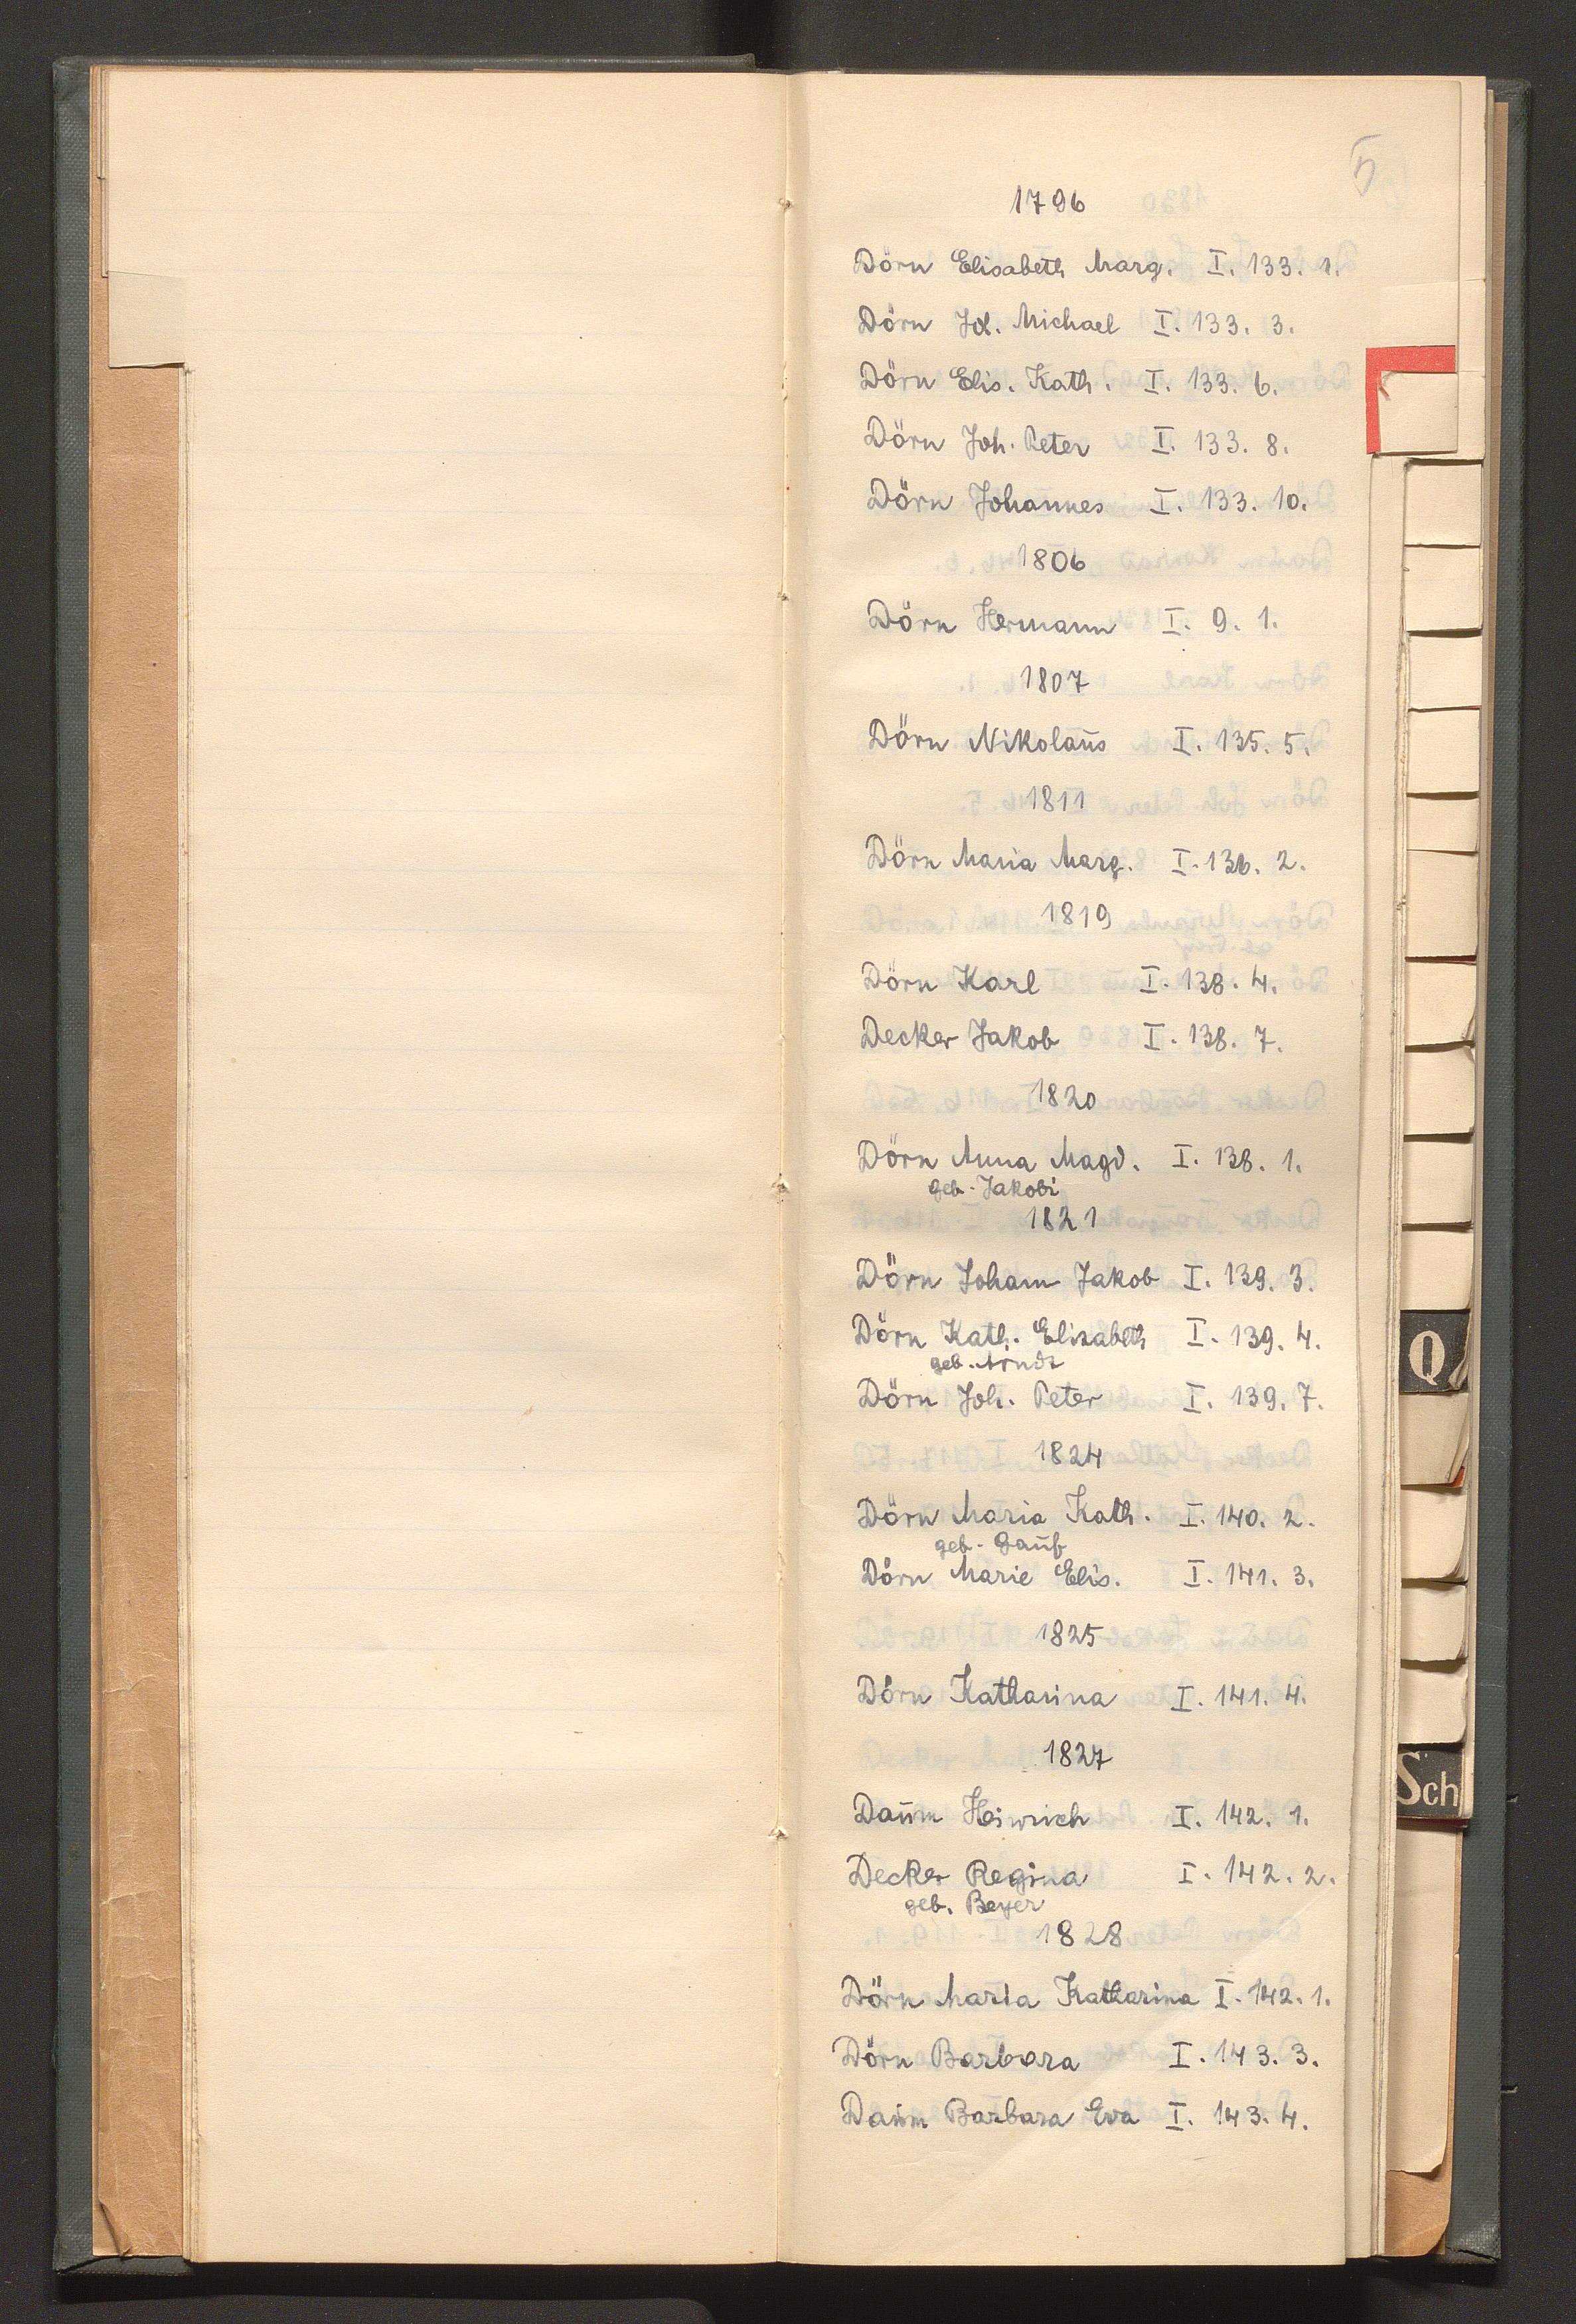 5
1796
Dörn Elisabeth Marg. I. 133. 1.
Dörn Joh. Michael I. 133. 3.
Dörn Elis. Kath. I. 133. 6.
Dörn Joh. Peter I. 133. 8.
Dörn Johannes I. 133. 10.
1806
Dörn Hermann I. 9. 1.
1807
Dörn Nikolaus I. 135. 5.
1811
Dörn Maria Marg. I. 136. 2.
1819
Dörn Karl I. 138. 4.
Decker Jakob I. 138. 7.
1820
Dörn Anna Magd. I. 138. 1.
geb. Jakobi
1821
Dörn Johann Jakob I. 139. 3.
Dörn Kath. Elisabeth I. 139. 4.
geb. Arndt
Dörn Joh. Peter I. 139. 7.
1824
Dörn Maria Kath. I. 140. 2.
geb.
Dörn Marie Elis. I. 141. 3.
1825
Dörn Katharina I. 141. 4.
1827
Daum Heinrich I. 142. 1.
Decker Regina I. 142. 2.
geb. Beyer
1828
Dörn Maria Katharina I. 142. 1.
Dörn Barbara I. 143. 3.
Daum Barbara Eva I. 143. 4.
Q
Sch